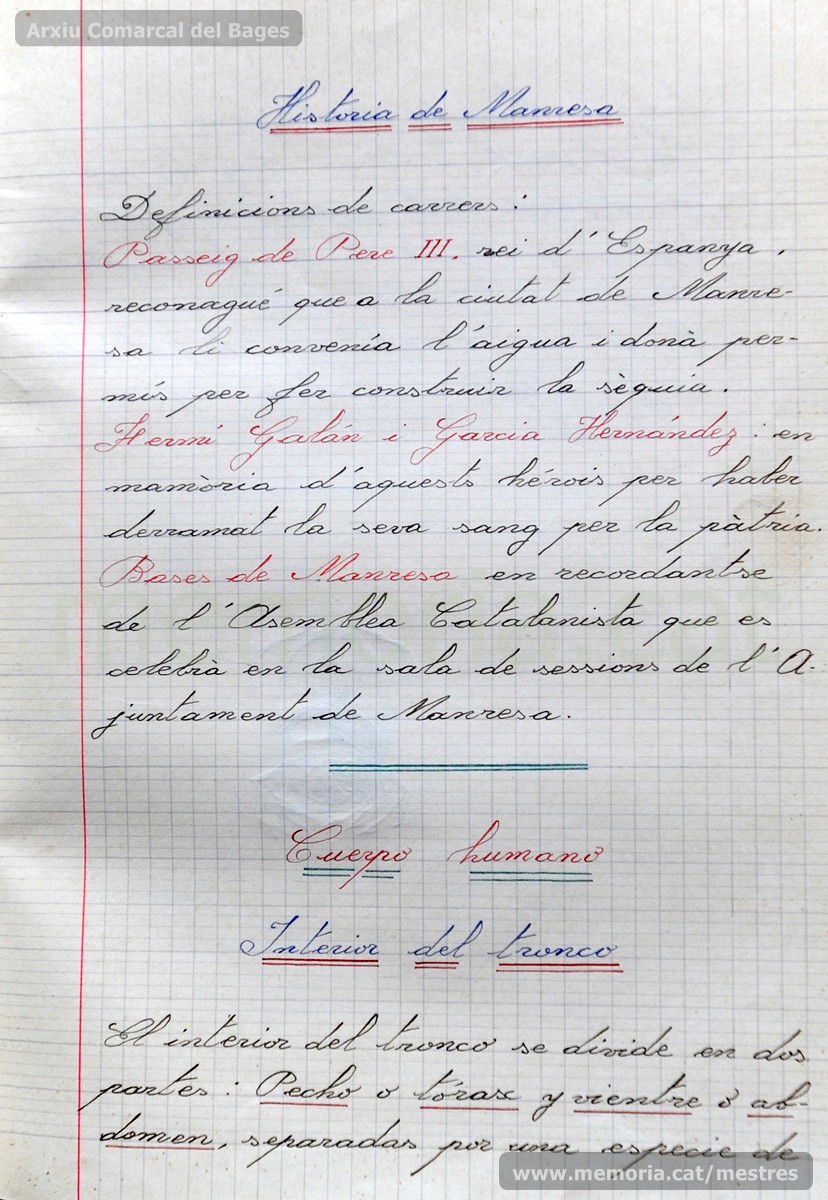 Arxiu Comarcal del Bages
Historia de Manresa
Definicions de carrers:
Passeig de Pere III. rei d'Espanya,
reconagué que a la ciutat de Manre-
sa li convenía l'aigua i donà per-
mís per fer construir la sèquia.
Fermí Galán i Garcia Hernández: en
mamòria d'aquests hérois per haber
derramat la seva sang per la pàtria.
Bases de Manresa en recordantse
de l'Asemblea Catalanista que es
celebrà en la sala de sessions de l'A-
juntament de Manresa.
Cuerpo humano
Interior del tronco
El interior del tronco se divide en dos
partes: Pecho o tórax y vientre ó ab-
domen, separadas por una especie de
www.memoria.cat/mestres